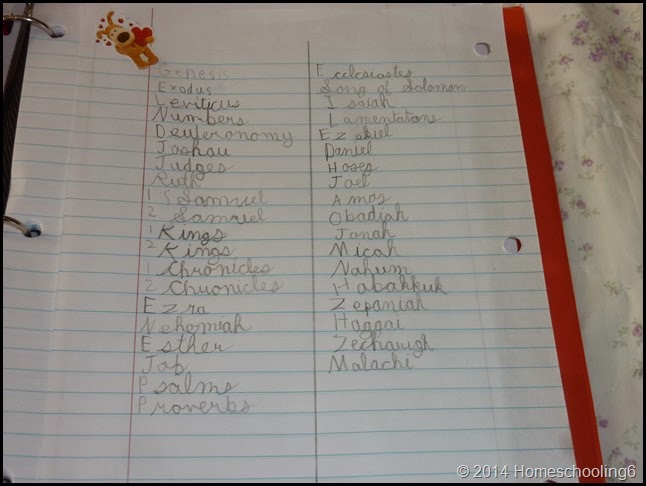 Genesis
Exodus
Leviticus
Numbers
Deuteronomy
Joshau
Judges
Ruth
1 Samuel
2 Samuel
1 Kings
2 Kings
1 Chronicles
2 Chronicles
Ezra
Nehomiah
Esther
Job
Psalms
Proverbs
Ecclesiastes
Song of Solomon
Isaiah
Lamentations
Ezekiel
Daniel
Hosea
Joel
Amos
Obadiah
Jonah
Micah
Nahum
Habakkuk
Zepaniah
Haggai
Zechariagh
Malachi
© 2014 Homeschooling6